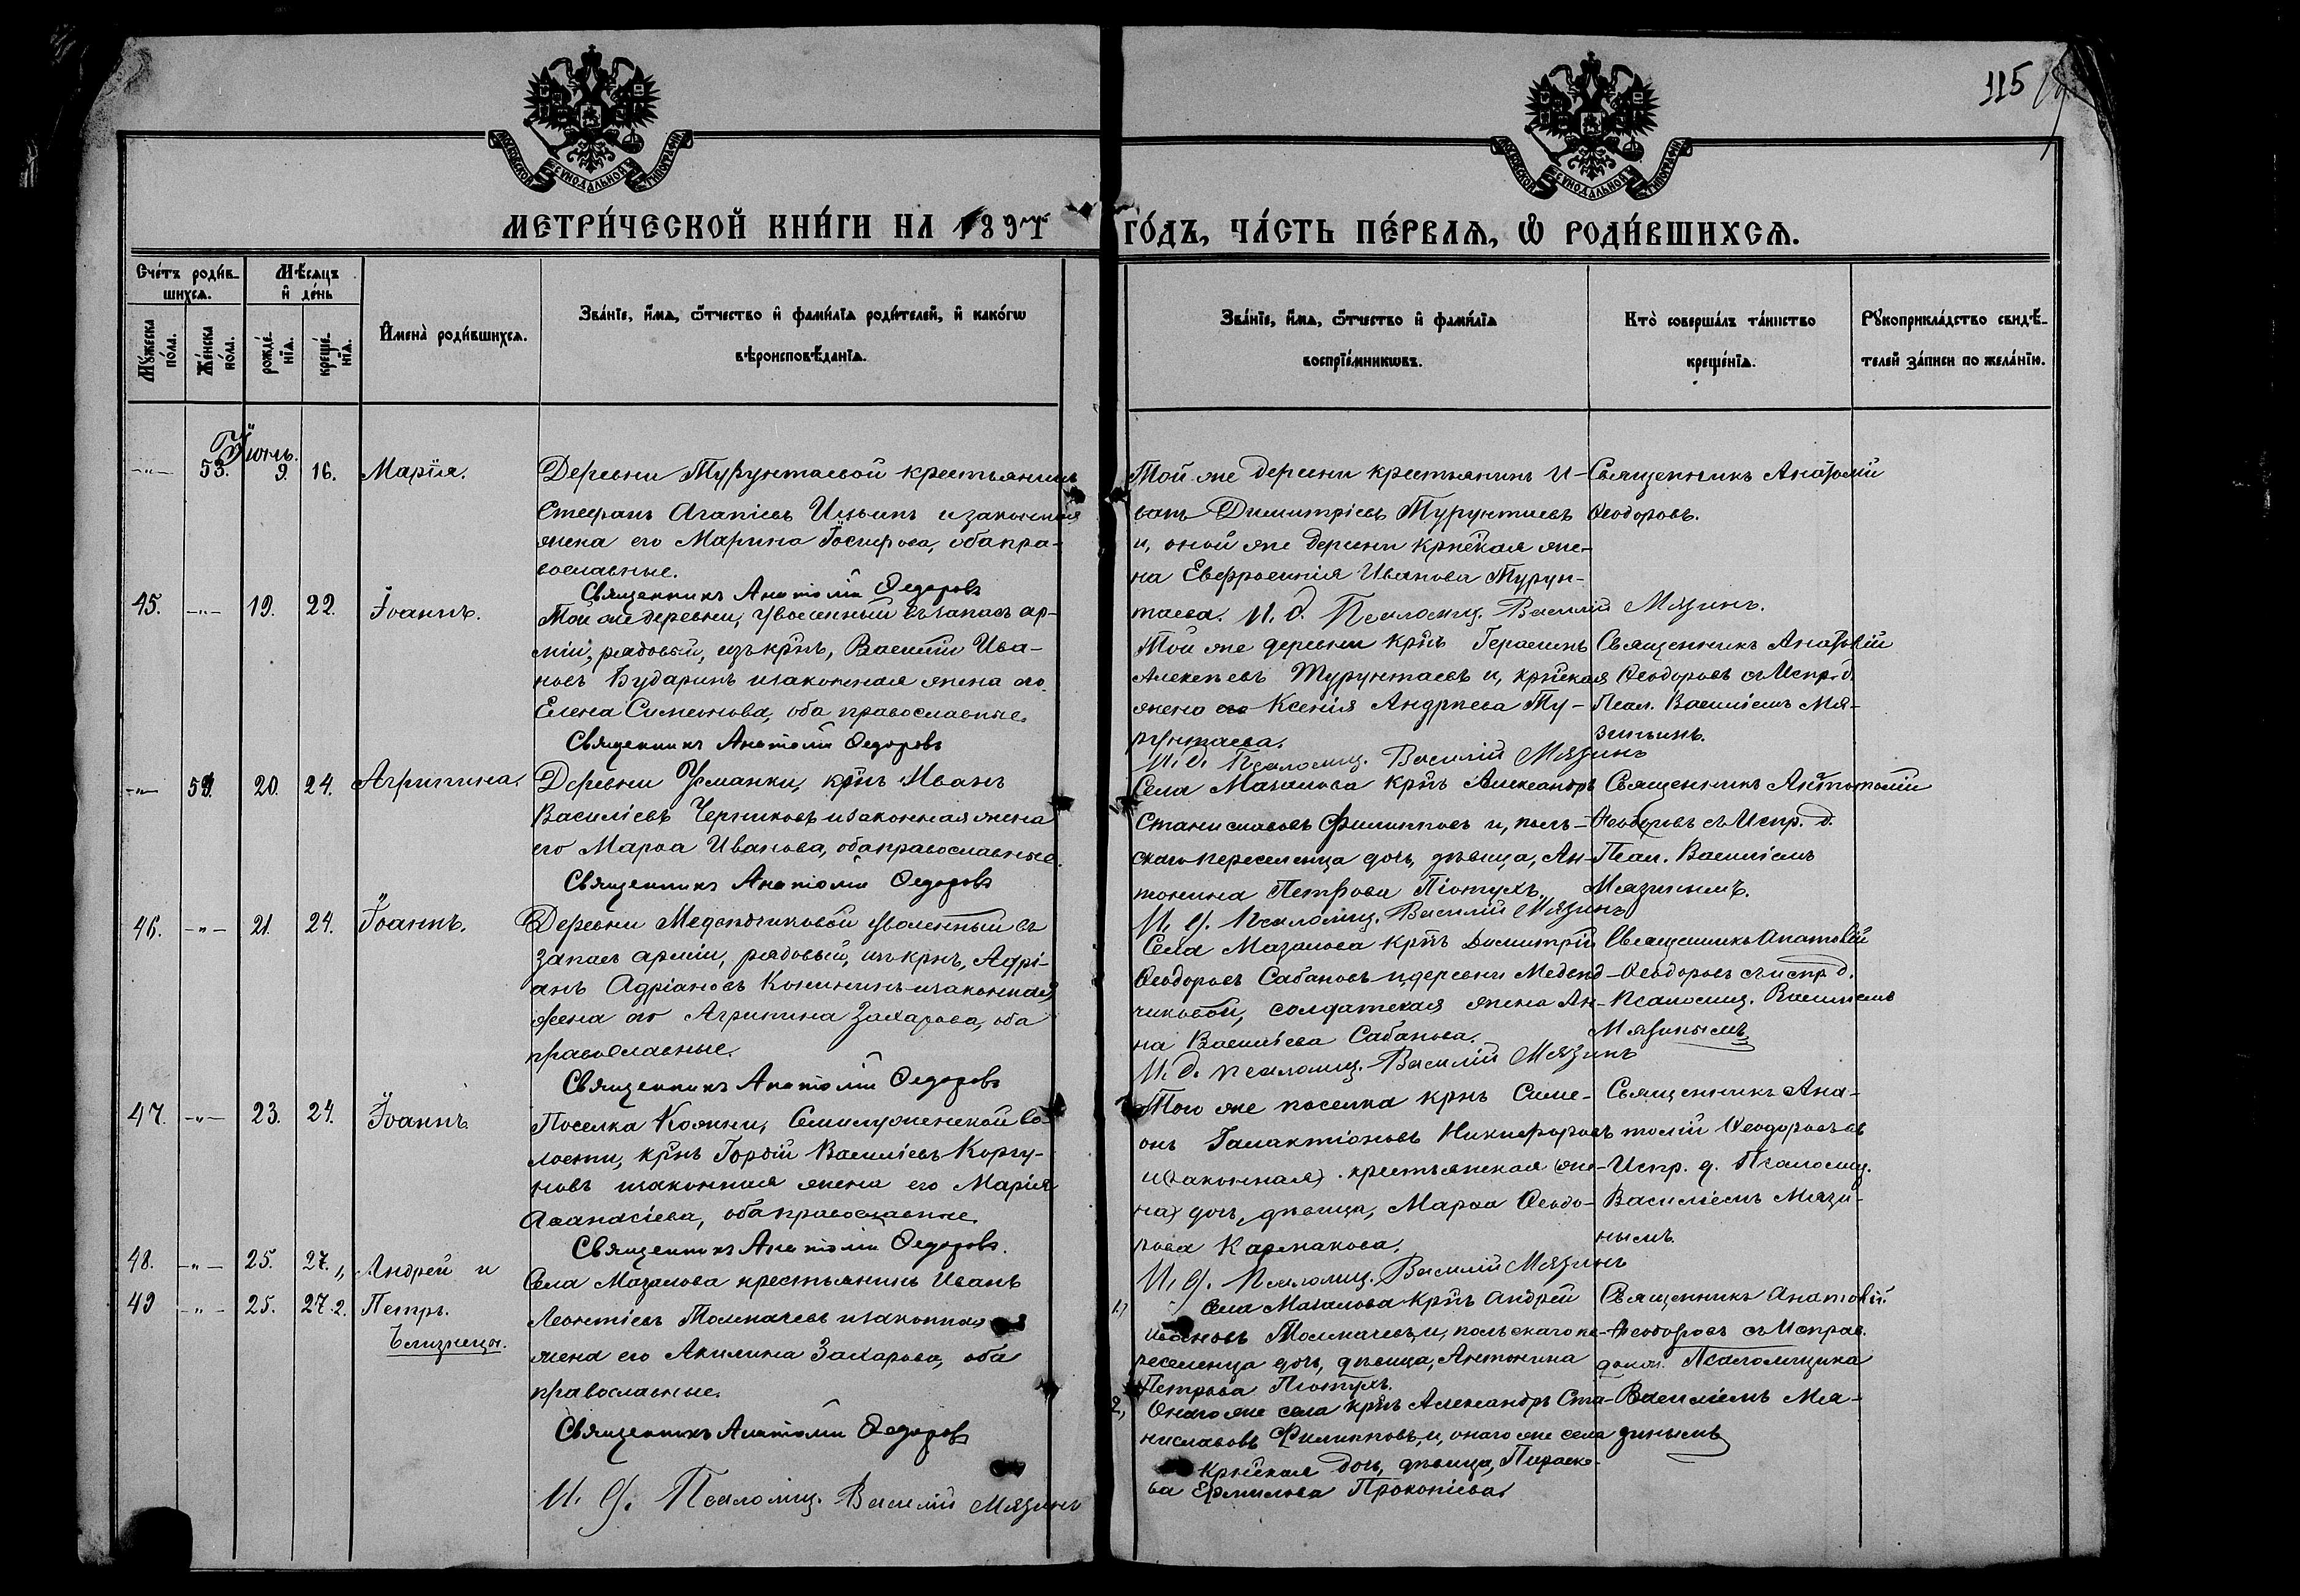 115
МОСКОВСКОЙ СѴНОДАЛЬНОЙ ТИПОГРАФІИ
МОСКОВСКОЙ СѴНОДАЛЬНОЙ ТИПОГРАФІИ
МЕТРИ́ЧЕСКОЙ КНИ́ГИ НА 1897
ГО́ДЪ, ЧА́СТЬ ПЕ́РВАѦ, Ѡ҆ РОДИ́ВШИХСѦ.
Сче́тъ роди́в-
шихсѧ.
Мѣ́сѧцъ
и҆ де́нь
Мꙋ́жеска
по́ла.
Же́нска
по́ла.
рожде́-
нїѧ.
креще́-
нїѧ.
И҆мена̀ роди́вшихсѧ.
Зва́нїе, и҆́мѧ, ѻ҆́тчество и҆ фами́лїѧ роди́телей, и҆ како́гѡ
вѣроисповѣ́данїѧ.
Зва́нїе, и҆́мѧ, ѻ҆́тчество и҆ фами́лїѧ
воспрїе́мникѡвъ.
Кто̀ соверша́лъ та́инство
креще́нїѧ.
Рꙋкоприкла́дство свидѣ́-
телей за́писи по жела́нїю.
Іюнь.
-"- 53. 9. 16. Марія.
Деревни Турунтаевой крестьянинъ
Стефанъ Агапіевъ Ильинъ и законная
жена его Марина Іосифова, оба пра-
вославные.
Священникъ Анатолій Ѳедоровъ
Той же деревни крестьянинъ И-
ванъ Димитріевъ Турунтаевъ
и, оной же деревни крнская же-
на Евфросинія Иванова Турун-
таева. И. д. Псаломщ. Василій Мязинъ.
Священникъ Анатолій
Ѳеодоровъ.
45. -"- 19. 22. Іоаннъ.
Той же деревни, уволенный въ запасъ ар-
міи, рядовый, изъ крнъ, Василій Ива-
новъ Бударинъ и законная жена его
Елена Симеонова, оба православные.
Священникъ Анатолій Ѳедоровъ
Той же деревни крнъ Герасимъ
Алексѣевъ Турунтаевъ и, крнская
жена его Ксенія Андреева Ту-
рунтаева.
И. д. Псаломщ. Василій Мязинъ
Священникъ Анатолій
Ѳеодоровъ съ Испр. д.
Псал. Василіемъ Мя-
зинымъ.
-"- 54. 20. 24. Агрипина.
Деревни Усманки, крнъ Иванъ
Василіевъ Черниковъ и законная жена
его Марѳа Иванова, оба православные.
Священникъ Анатолій Ѳедоровъ
Села Мазалова крнъ Александръ
Станиславовъ Филипповъ и, поль-
скаго переселенца дочь, дѣвица, Ан-
тонина Петрова Піотухъ.
И. д. Псаломщ. Василій Мязинъ
Священникъ Анатолій
Ѳеодоровъ съ Испр. д.
Псал. Василіемъ
Мязинымъ.
46. -"- 21. 24. Іоаннъ.
Деревни Медвѣдчиковой уволенный въ
запасъ арміи, рядовый, изъ крнъ, Адрі-
анъ Адріановъ Конининъ и законная
жена его Агрипина Захарова, оба
православные.
Священникъ Анатолій Ѳедоровъ
Села Мазалова крнъ Димитрій
Ѳеодоровъ Сабановъ и деревни Медвѣд-
чиковой, солдатская жена Ан-
на Василіева Сабанова.
И. д. псаломщ. Василій Мязинъ
Священникъ Анатолій
Ѳеодоровъ съ испр. д.
Псаломщ. Василіемъ
Мязинымъ
47. -"- 23. 24. Іоаннъ
Поселка Коянни, Семилуженской во-
лости, крнъ Гордій Василіевъ Коргу-
новъ и законная жена его Марія
Аѳанасіева, оба православные.
Священникъ Анатолій Ѳедоровъ.
Того же поселка крнъ Симе-
онъ Галактіоновъ Никифоровъ
и (законная) крестьянская (же-
на) дочь, дѣвица, Марѳа Ѳеодо-
рова Кармакова.
И. д. Псаломщ. Василій Мязинъ
Священникъ Ана-
толій Ѳеодоровъ съ
Испр. д. Псаломщ.
Василіемъ Мязи-
нымъ
48. -"- 25. 27. 1, Андрей и
49 -"- 25. 27. 2. Петръ.
Близнецы.
Села Мазалова крестьянинъ Иванъ
Леонтіевъ Толмачевъ и законная
жена его Акилина Захарова, оба
православные.
Священникъ Анатолій Ѳедоровъ
И. д. Псаломщ. Василій Мязинъ
1,) Села Мазалова крнъ Андрей
Ивановъ Толмачевъ и, польскаго пе-
реселенца дочь, дѣвица, Антонина
Петрова Піотухъ.
2, Онаго же села крнъ Александръ Ста-
ниславовъ Филипповъ, и, онаго же села
крнская дочь, дѣвица, Параске-
ва Ермилова Прокопіева.
Священникъ Анатолій
Ѳеодоровъ съ Исправ.
должн. Псаломщика
Василіемъ Мя-
зинымъ